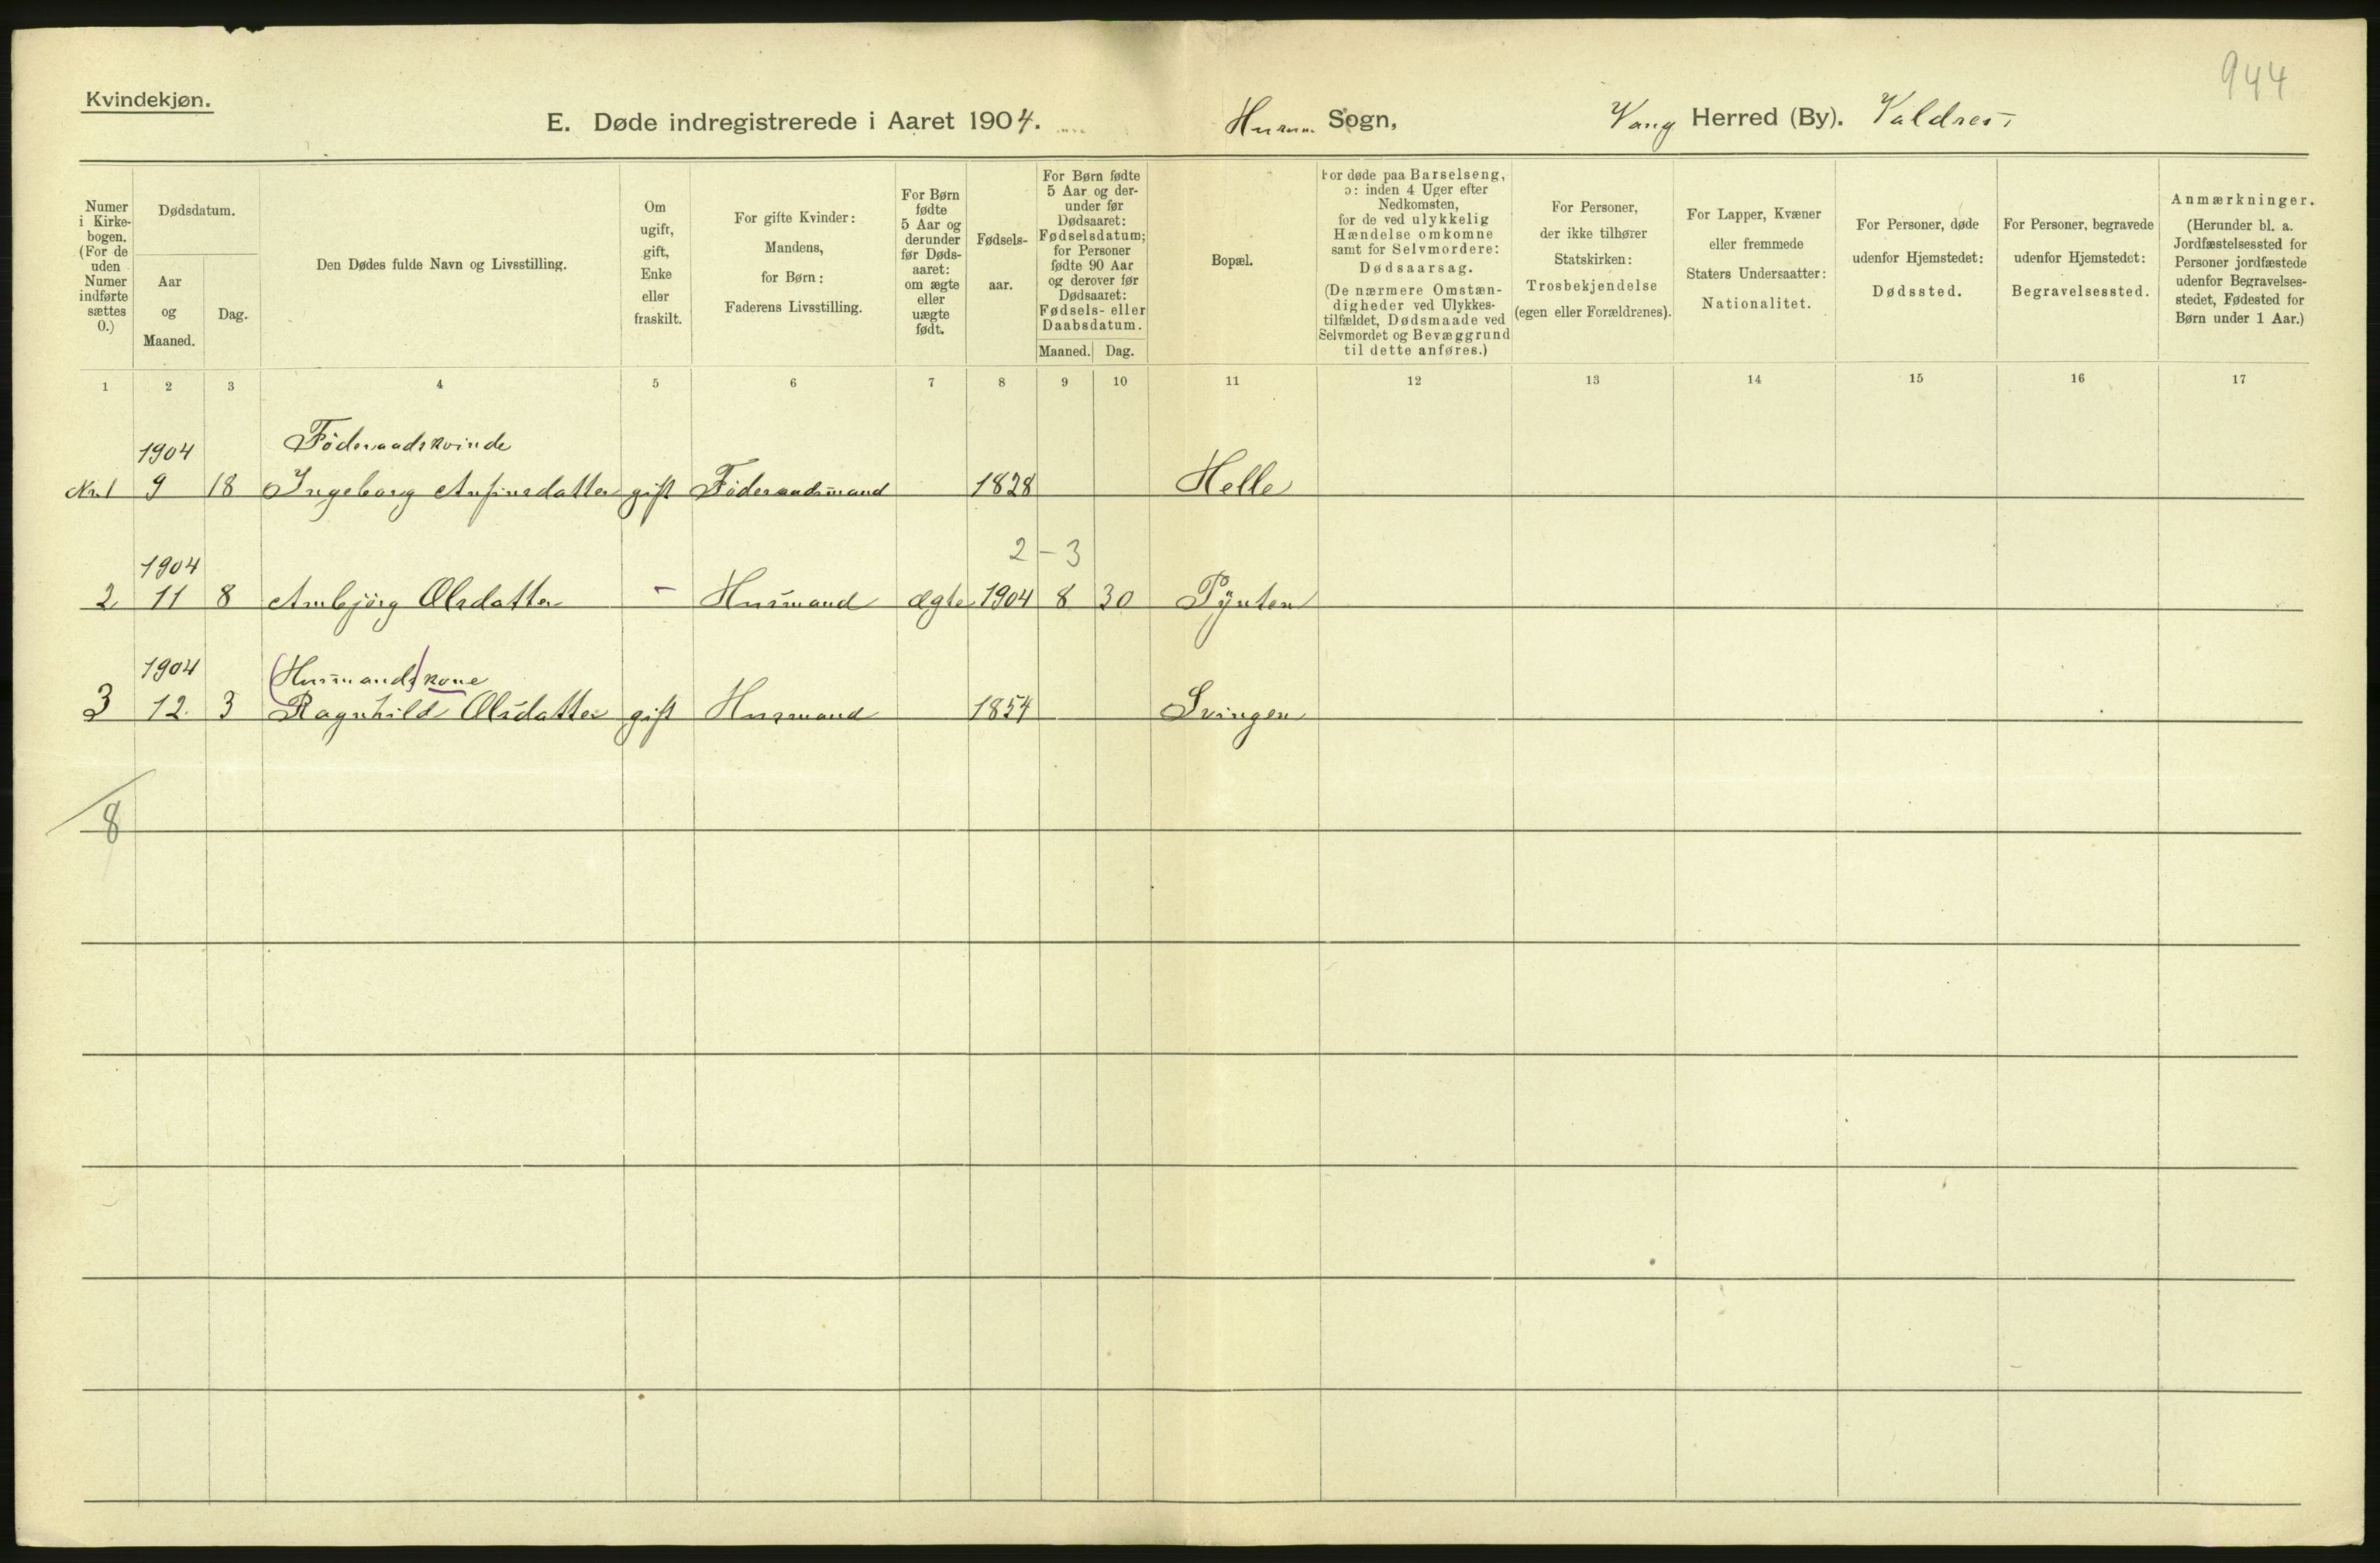 944
Kvindekjøn.
E. Døde indregistrerede i Aaret 1904. Hurum Sogn, Vang Herred (By). Valdres
Numer i Kirke-bogen. (For de uden Numer indførte sættes 0.)
Dødsdatum.
Aar og Maaned.
Dag.
Den Dødes fulde Navn og Livsstilling.
Om ugift, gift, Enke eller fraskilt.
For gifte Kvinder: Mandens, for Børn: Faderens Livsstilling.
For Børn fødte 5 Aar og derunder før Døds-aaret: om ægte eller uægte født.
Fødsels-aar.
For Børn fødte 5 Aar og der-under før Dødsaaret: Fødselsdatum; for Personer fødte 90 Aar og derover før Dødsaaret: Fødsels- eller Daabsdatum.
Maaned. Dag.
Bopæl.
For døde paa Barselseng, ɔ: inden 4 Uger efter Nedkomsten, for de ved ulykkelig Hændelse omkomne samt for Selvmordere: Dødsaarsag. (De nærmere Omstæn-digheder ved Ulykkes-tilfældet, Dødsmaade ved Selvmordet og Bevæggrund til dette anføres.)
For Personer, der ikke tilhører Statskirken: Trosbekjendelse (egen eller Forældrenes).
For Lapper, Kvæner eller fremmede Staters Undersaatter: Nationalitet.
For Personer, døde udenfor Hjemstedet: Dødssted.
For Personer, begravede udenfor Hjemstedet: Begravelsessted.
Anmærkninger. (Herunder bl. a. Jordfæstelsessted for Personer jordfæstede udenfor Begravelses-stedet, Fødested for Børn under 1 Aar.)
1 2 3 4 5 6 7 8 9 10 11 12 13 14 15 16 17
1904 Föderaadskvinde
Nr. 1 9 18 Ingeborg Anfinsdatter gift Föderaadsmand 1828 Helle
1904 2 - 3
2 11 8 Ambjörg Olsdatter - Husmand ægte 1904 8 30 Pynten
1904 (Husmands) kone
3 12. 3 Ragnhild Olsdatter gift Husmand 1854 Svingen
8